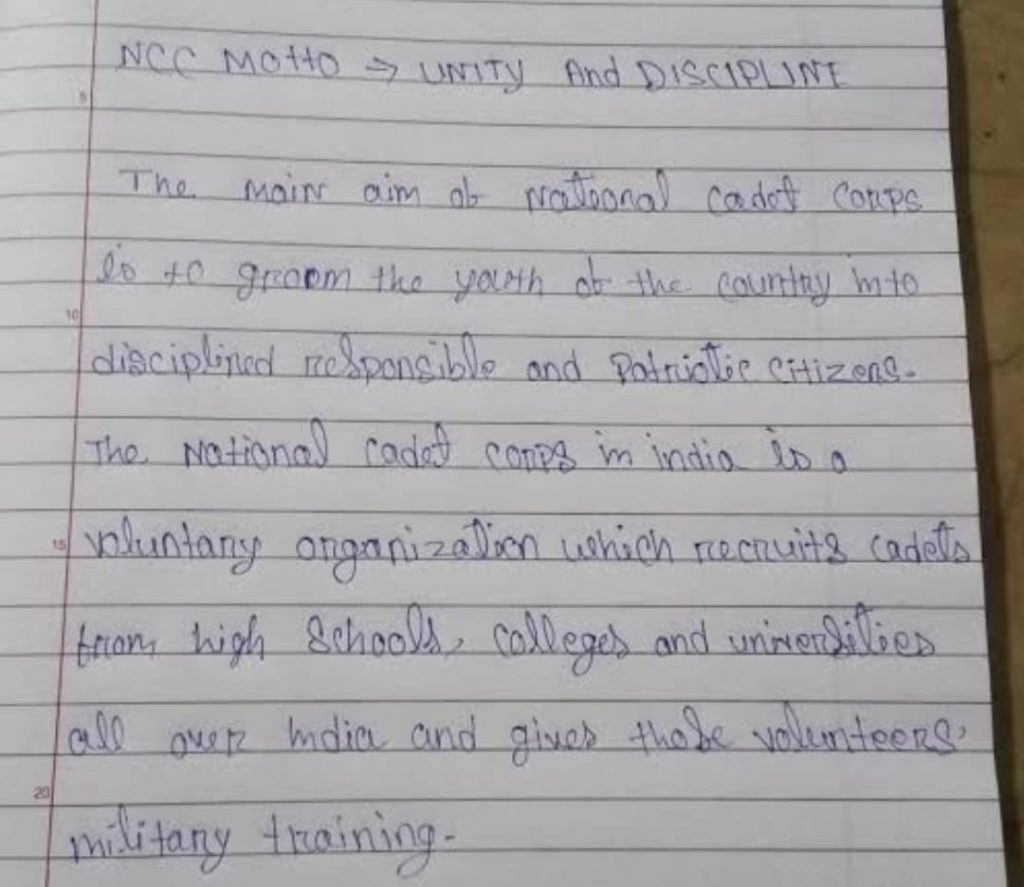 NCC Motto → UNITY And DISCIPLINE
The main aim of National Cadet Corps
is to groom the youth of the country into
disciplined responsible and Patriotic citizens.
The National Cadet corps in india is a
voluntary organization which recruits cadets
from high Schools, Colleges and universities
all over India and gives those volunteers
military training.